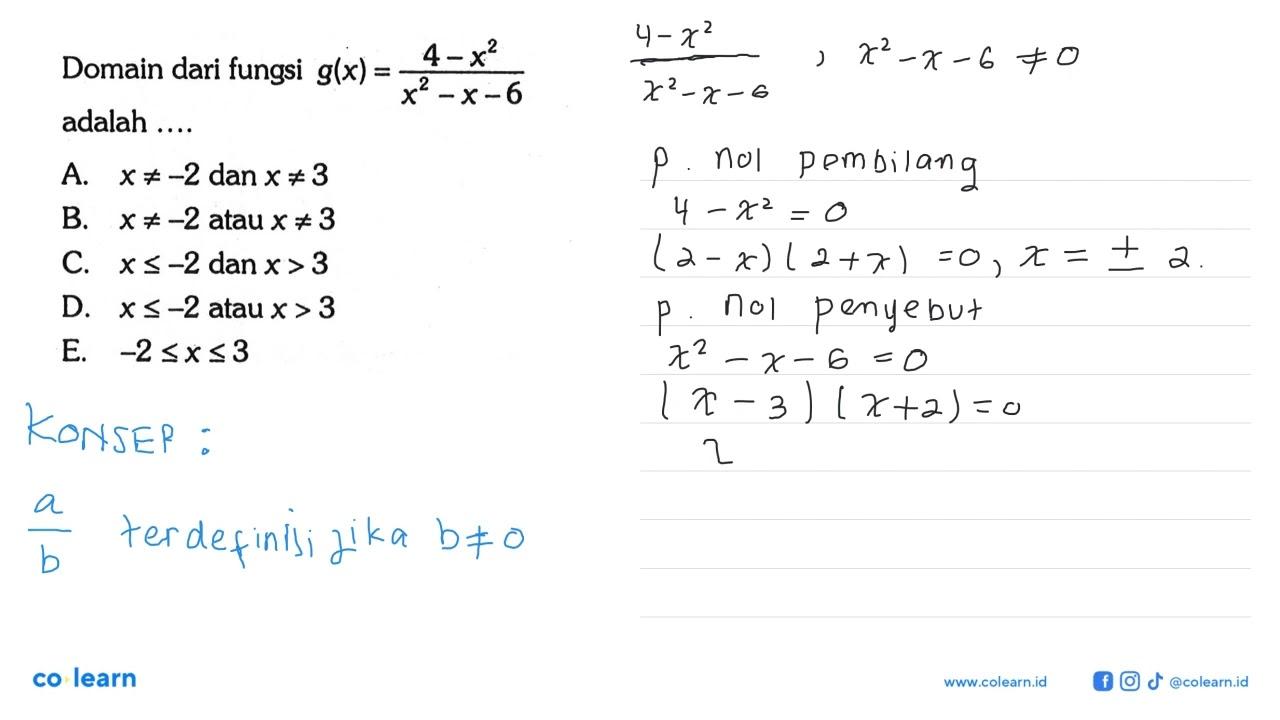 Domain dari fungsi g(x) = (4 – x²)/(x² – x – 6)
adalah ....
A. x ≠ –2 dan x ≠ 3
B. x ≠ –2 atau x ≠ 3
C. x ≤ –2 dan x > 3
D. x ≤ –2 atau x > 3
E. –2 ≤ x ≤ 3
KONSEP :
a/b terdefinisi jika b ≠ 0
(4 – x²)/(x² – x – 6) , x² – x – 6 ≠ 0
p. nol pembilang
4 – x² = 0
(2 – x)(2 + x) = 0, x = ± 2.
p. nol penyebut
x² – x – 6 = 0
(x – 3)(x + 2) = 0
co learn
www.colearn.id
@colearn.id